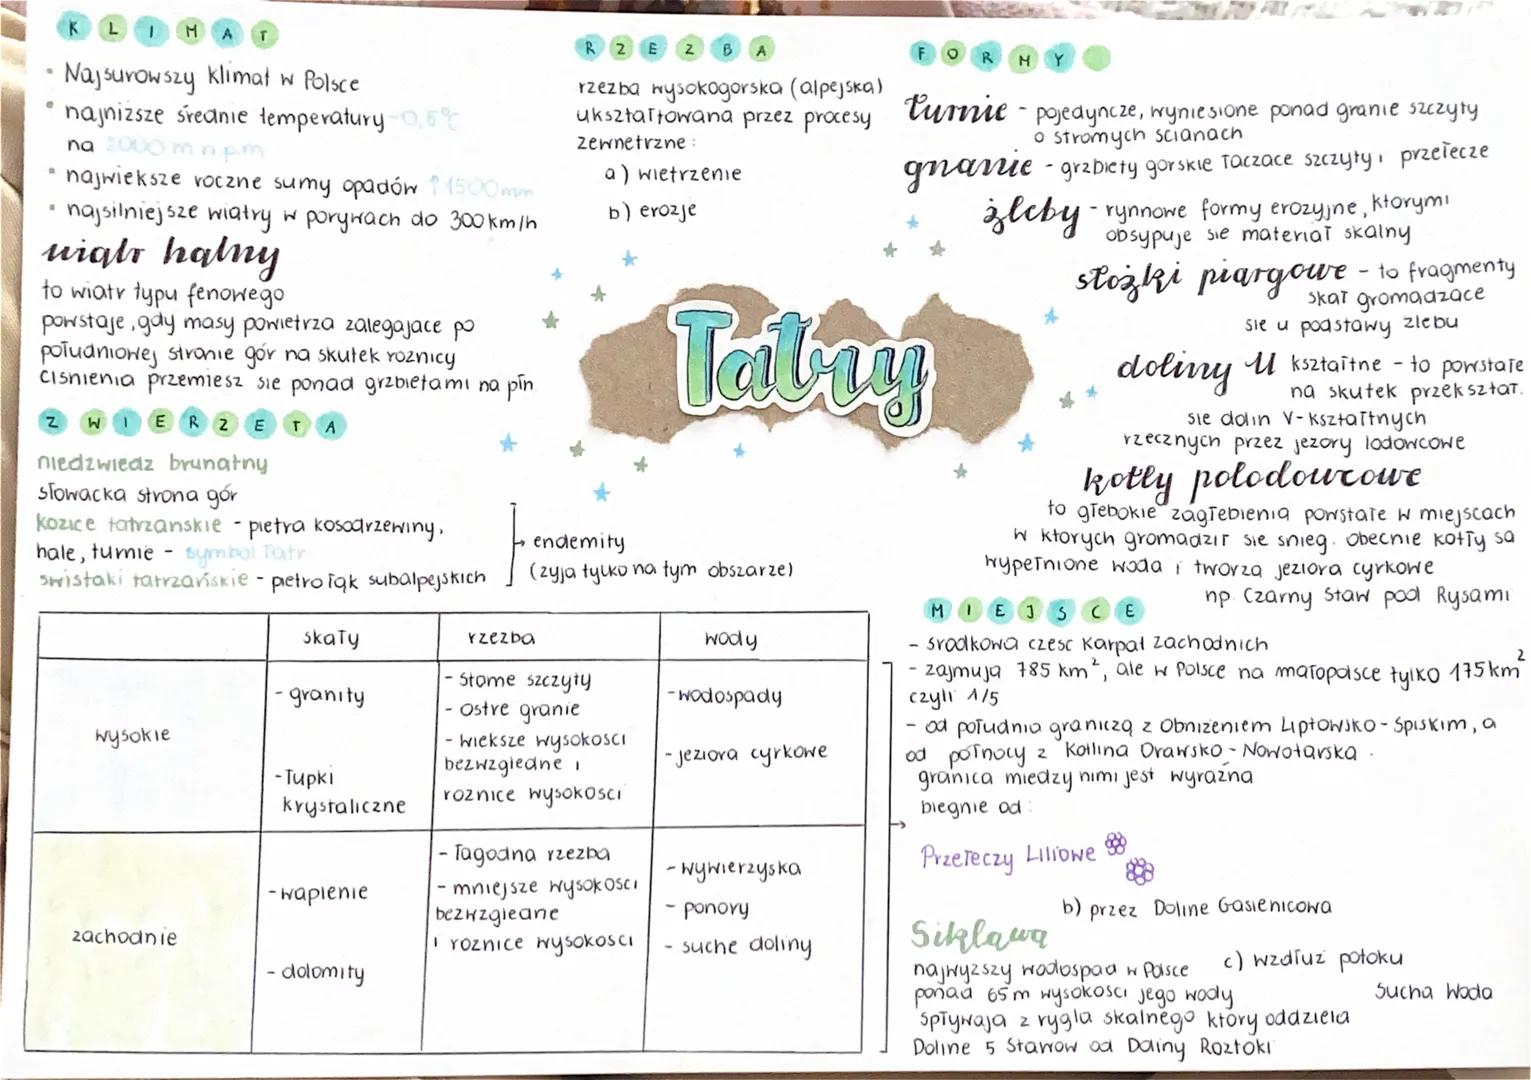 KLIMAT
• Najsurowszy klimat w Polsce
• najniższe średnie temperatury -0,5°C
na 2000 m n.p.m
• największe roczne sumy opadów ↑1500mm
• najsilniejsze wiatry w porywach do 300km/h
wiatr halny
to wiatr typu fenowego
powstaje, gdy masy powietrza zalegajace po
południowej stronie gór na skutek roznicy
cisnienia przemiesz sie ponad grzbietami na płn
ZWIERZETA
niedzwiedz brunatny
słowacka strona gór
kozice tatrzanskie - pietra kosodrzewiny,
hale, turnie - symbol Tatr
swistaki tatrzańskie - pietro łąk subalpejskich
endemity
(zyja tylko na tym obszarze)
RZEZBA
rzezba wysokogorska (alpejska)
ukształtowana przez procesy
zewnetrzne:
a) wietrzenie
b) erozje
Tatry
FORMY
turnie - pojedyncze, wyniesione ponad granie szczyty
o stromych scianach
gnanie - grzbiety gorskie łaczace szczyty i przełecze
żleby - rynnowe formy erozyjne, ktorymi
obsypuje sie materiał skalny
stożki piargowe - to fragmenty
skał gromadzace
sie u podstawy zlebu
doliny U kształtne - to powstałe
na skutek przekształ.
sie dolin V-kształtnych
rzecznych przez jezory lodowcowe
kotły polodowcowe
to głebokie zagłebienia powstałe w miejscach
w ktorych gromadził sie snieg. Obecnie kotły sa
wypełnione woda i tworza jeziora cyrkowe
np. Czarny Staw pod Rysami
skały rzezba wody
wysokie
- granity
- łupki
krystaliczne
- Stome szczyty
- Ostre granie
- wieksze wysokosci
bezwzgledne i
roznice wysokosci
- wodospady
- jeziora cyrkowe
zachodnie
- wapienie
- dolomity
- łagodna rzezba
- mniejsze wysokosci
bezwzgledne
i roznice wysokosci
- wywierzyska
- ponory
- suche doliny
MIEJSCE
- srodkowa czesc Karpat Zachodnich
- zajmuja 785 km², ale w Polsce na małopolsce tylko 175km²
czyli 1/5
- od południa graniczą z Obnizeniem Liptowsko-Spiskim, a
od połnocy z Kotlina Orawsko-Nowotarska.
granica miedzy nimi jest wyraźna
biegnie od:
Przełeczy Liliowe
b) przez Doline Gasienicowa
c) wzdłuż potoku
Sucha Woda
Siklawa
najwyzszy wodospad w Polsce
ponad 65m wysokosci jego wody
spływaja z rygla skalnego ktory oddziela
Doline 5 Stawow od Doliny Roztoki